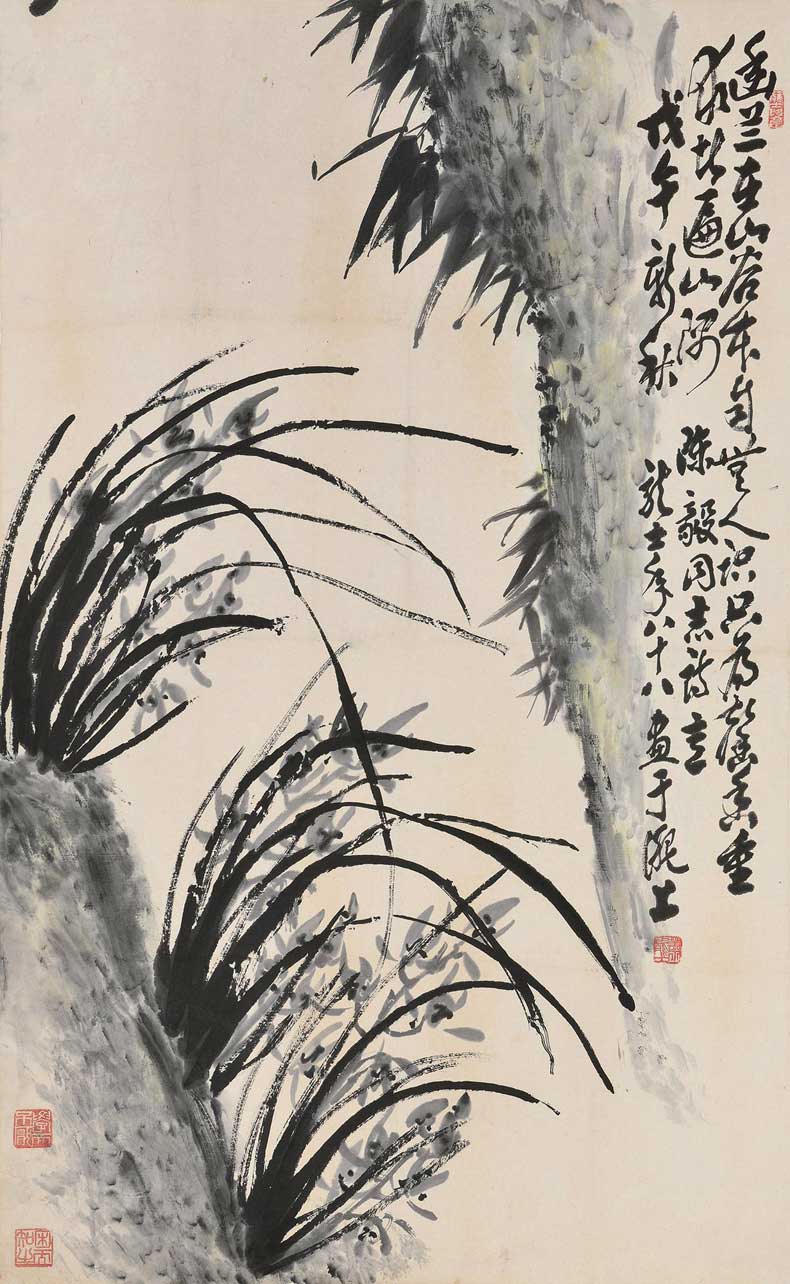 幽兰在山谷本自无人识只为馨香重
求者遍山隅 陈毅同志诗意
戊午新秋 龙士年八十八画于沪上